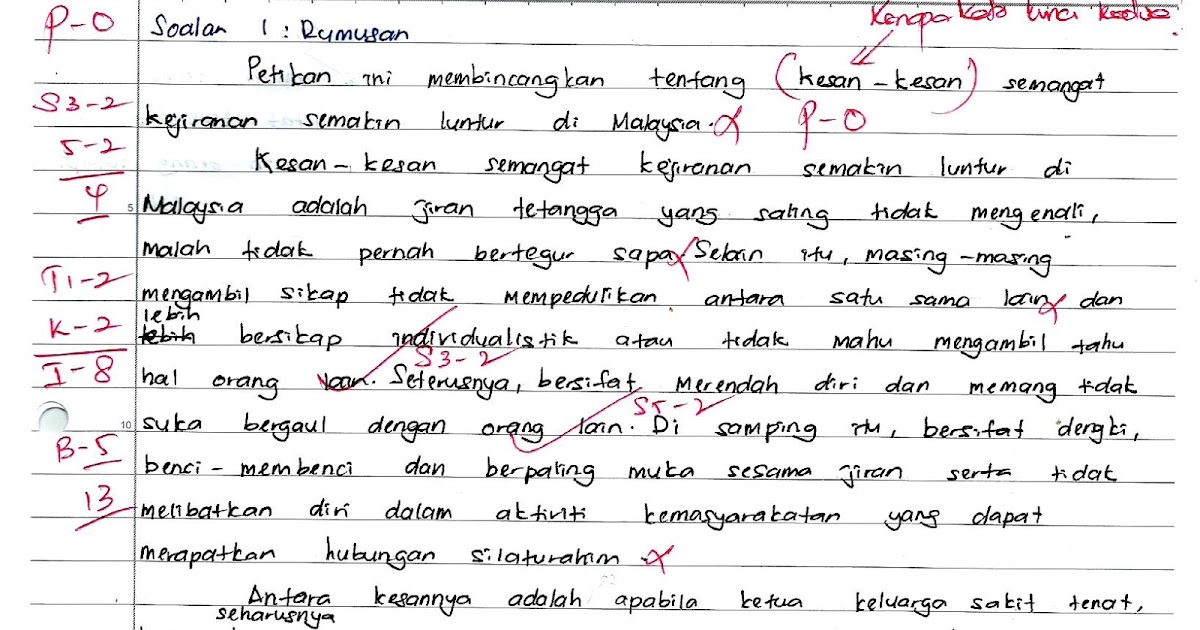 P-0 Soalan 1 : Rumusan
Kenapa kata kunci kedua
Petikan ini membincangkan tentang (kesan-kesan) semangat
S3-2
kejiranan semakin luntur di Malaysia. P-0
5-2
Kesan-kesan semangat kejiranan semakin luntur di
4
5 Malaysia adalah jiran tetangga yang saling tidak mengenali,
malah tidak pernah bertegur sapa. Selain itu, masing-masing
T1-2
mengambil sikap tidak mempedulikan antara satu sama lain dan
lebih
K-2 lebih bersikap individualistik atau tidak mahu mengambil tahu
S3-2
I-8 hal orang lain. Seterusnya, bersifat merendah diri dan memang tidak
S5-2
10 suka bergaul dengan orang lain. Di samping itu, bersifat dengki,
B-5
benci-membenci dan berpaling muka sesama jiran serta tidak
13 melibatkan diri dalam aktiviti kemasyarakatan yang dapat
merapatkan hubungan silaturahim.
Antara kesannya adalah apabila ketua keluarga sakit tenat,
seharusnya